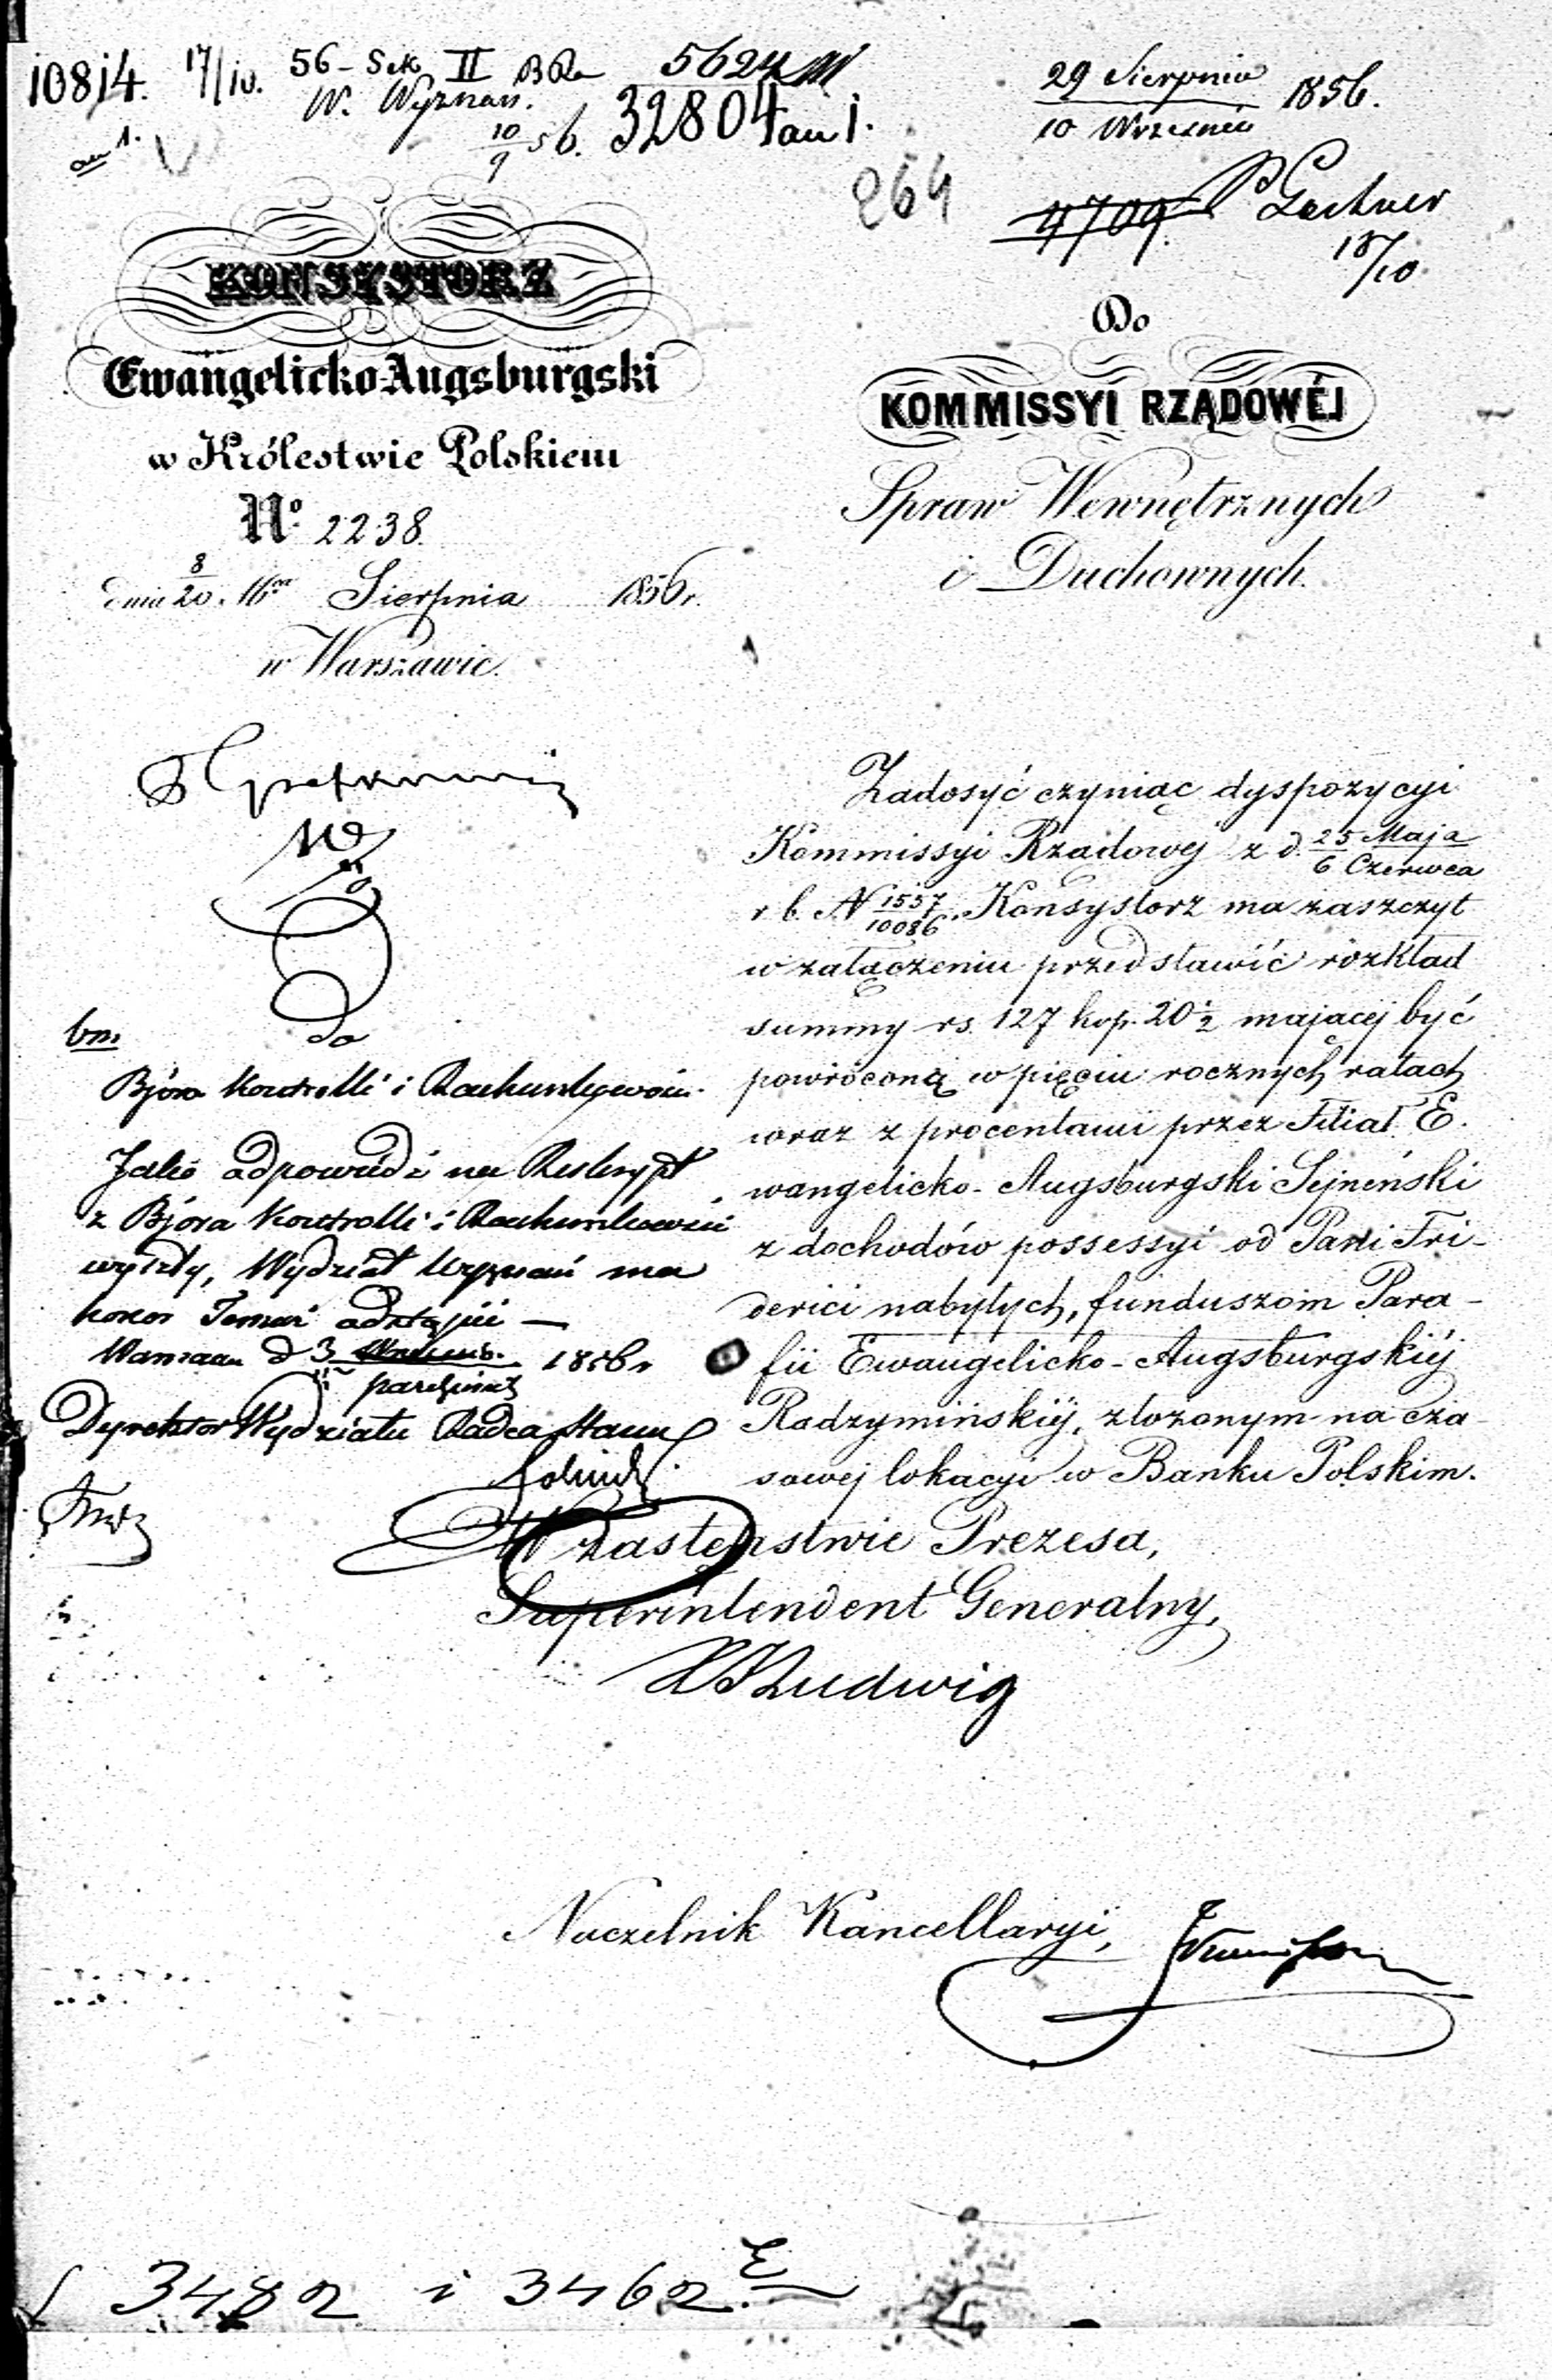 10814. 17/10. 56 - Sek II 5624
W. Wyznań. 10/9 56. 32804 an 1.
an 1.
29 Sierpnia
10 Września 1856.
264
4709. Lechner
18/10
KONSYSTORZ
Ewangelicko-Augsburgski
w Królestwie Polskiem
No. 2238.
dnia 8/20 Mca Sierpnia 1856 r.
w Warszawie.
Do
KOMMISSYI RZĄDOWÉJ
Spraw Wewnętrznych
i Duchownych.
Zadosyć czyniąc dyspozycyi
Kommissyi Rządowej z d. 25 Maja / 6 Czerwca
r. b. N 1557/10086, Konsystorz ma zaszczyt
w załączeniu przedstawić rozkład
summy rs. 127 kop. 20 1/2 mającej być
powróconą w pięciu rocznych ratach
wraz z procentami przez Filiał E.
wangelicko-Augsburgski Sejneński
z dochodów possessyi od Pani Fri-
derici nabytych, funduszom Para-
fii Ewangelicko-Augsburgskiéj
Radzymińskiéj, złożonym na cza-
sowej lokacyi w Banku Polskim.
W Zastępstwie Prezesa,
Superintendent Generalny,
Ludwig
Naczelnik Kancellaryi,
bm.
do
Bióra Kontrolli i Rachunkowości.
Jako odpowiedź na Reskrypt
z Bióra Kontrolli i Rachunkowości
wyszły, Wydział Wyznań ma
honor Temuż odstąpić —
Warszawa d 3 Października 1856 r
Dyrektor Wydziału Radca Stanu
3482 i 3462.